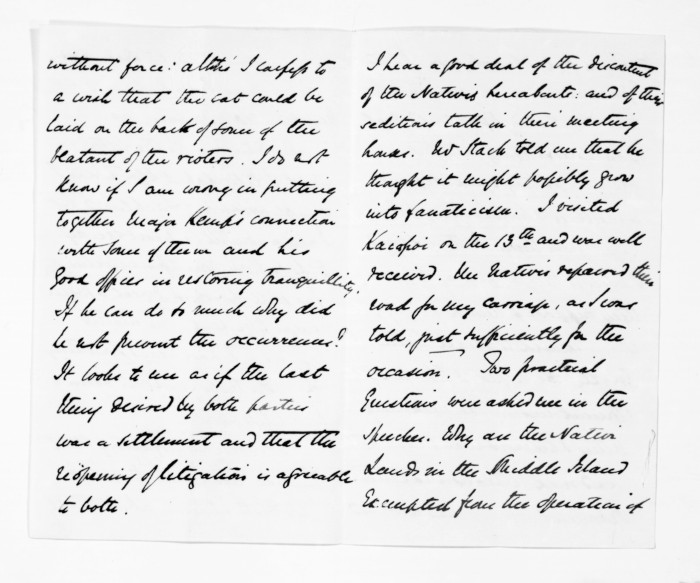 without force: altho' I confess to
a wish that the cat could be
laid on the back of some of the
blatant of the rioters. I do not
know if I am wrong in putting
together Major Kemp's connection
with some of them and his
good offices in restoring tranquillity.
If he can do so much why did
he not prevent the occurrence?
It looks to me as if the last
thing desired by both parties
was a settlement and that the
reopening of litigation is agreeable
to both.
I hear a good deal of the discontent
of the Natives hereabouts: and of their
seditious talk in their meeting
houses. Mr Stack told me that he
thought it might possibly grow
into fanaticism. I visited
Kaiapoi on the 13th and was well
received. The Natives repaired their
road for my carriage, as I was
told, just sufficiently for the
occasion. Two practical
Questions were asked me in the
speeches. Why are the Native
Lands in the Middle Island
Excempted from the operation of